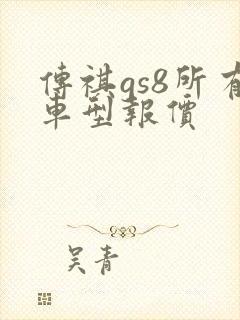 傳祺gs8所有
車型報價
吴青